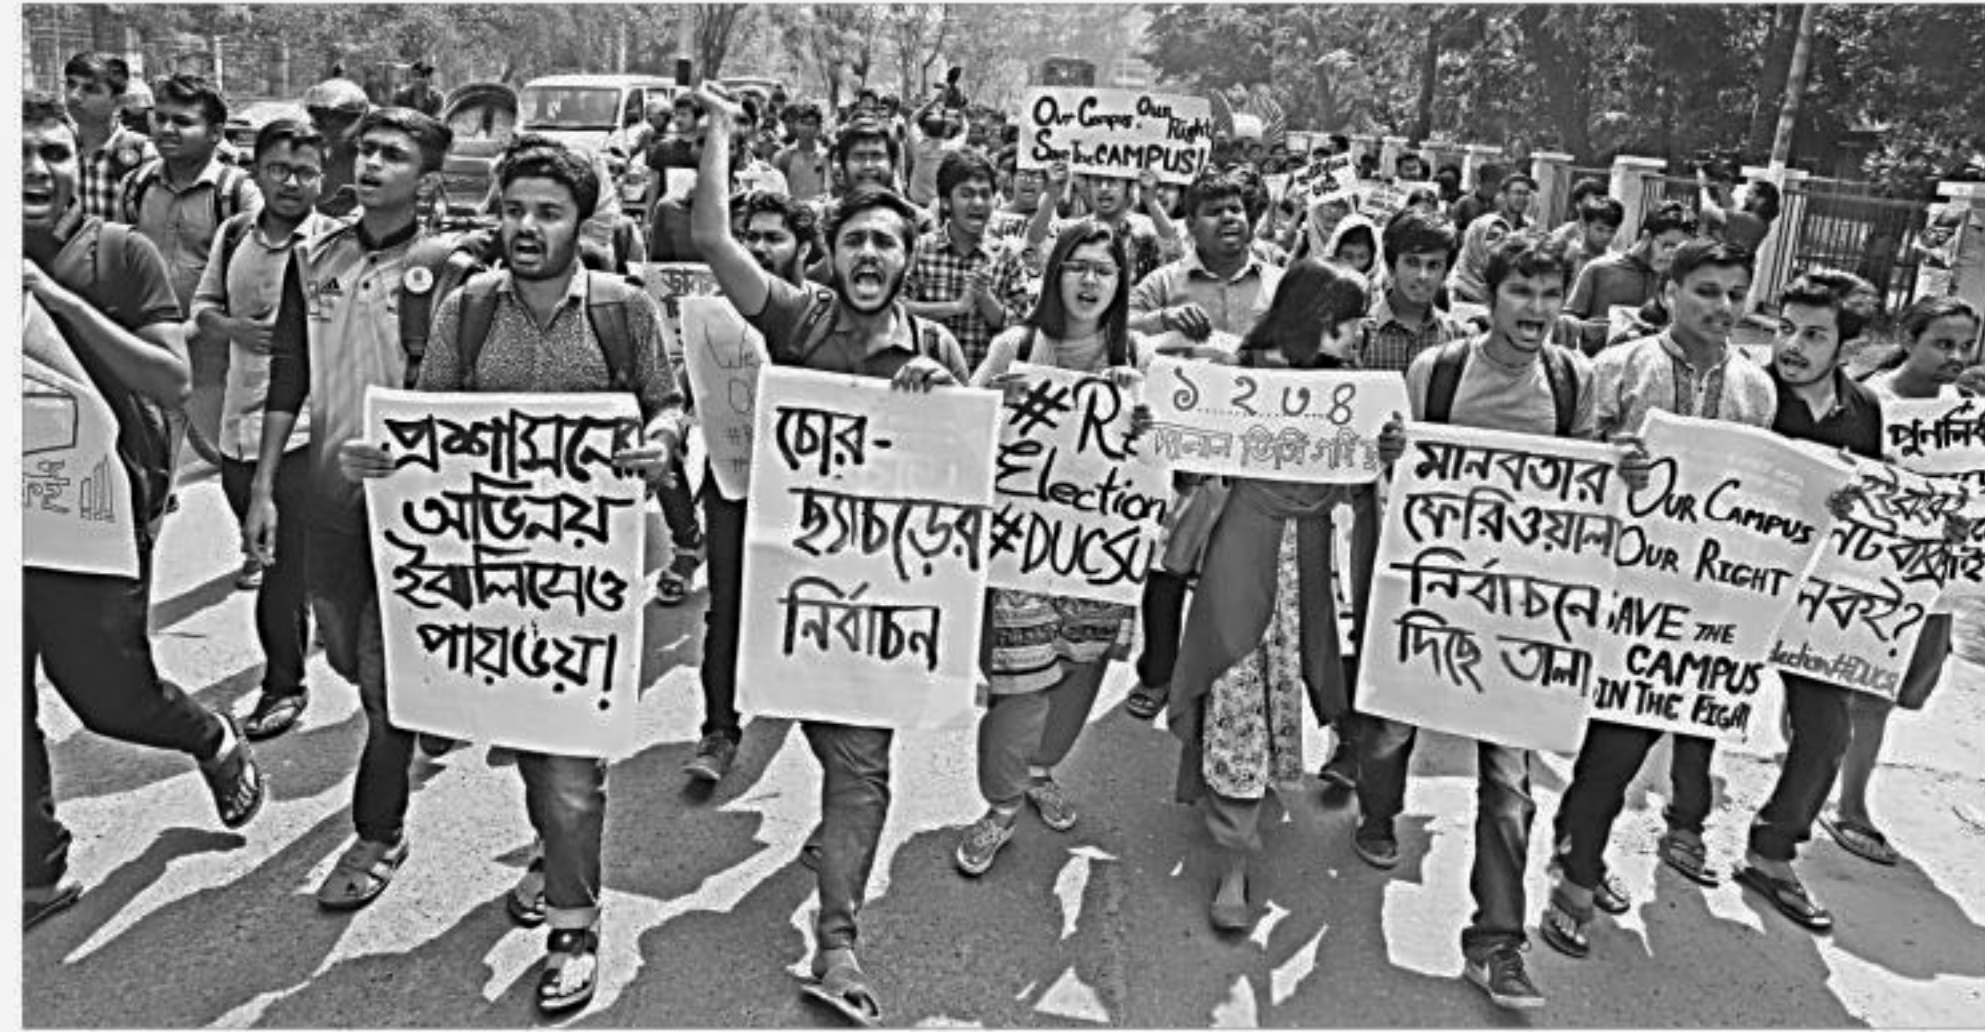 Our Campus, Our Right
Save The CAMPUS!
প্রশাসনের
অভিনয়
ইবলিসেও
পায় ভয়!
We
চোর-
ছ্যাচড়ের
নির্বাচন
#Re
Election
#DUCSU
১ ২ ৩ ৪
দালাল ভিসি গদি
মানবতার
ফেরিওয়ালা
নির্বাচনে
দিছে তালা
OUR CAMPUS
OUR RIGHT
SAVE THE
CAMPUS
IN THE FIGHT
পুননির্